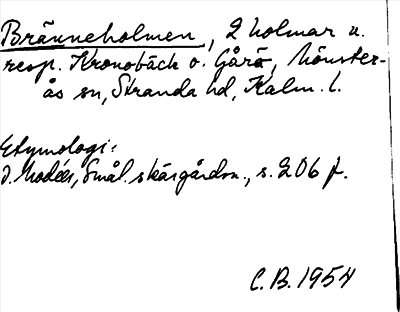 Bränneholmen, 2 holmar u.
resp. Kronobäck o. Gårö, Mönster-
ås sn, Stranda hd, Kalm. l.
Etymologi:
J. Modéer, Smål. skärgårdsn., s. 206 f.
C.B. 1954